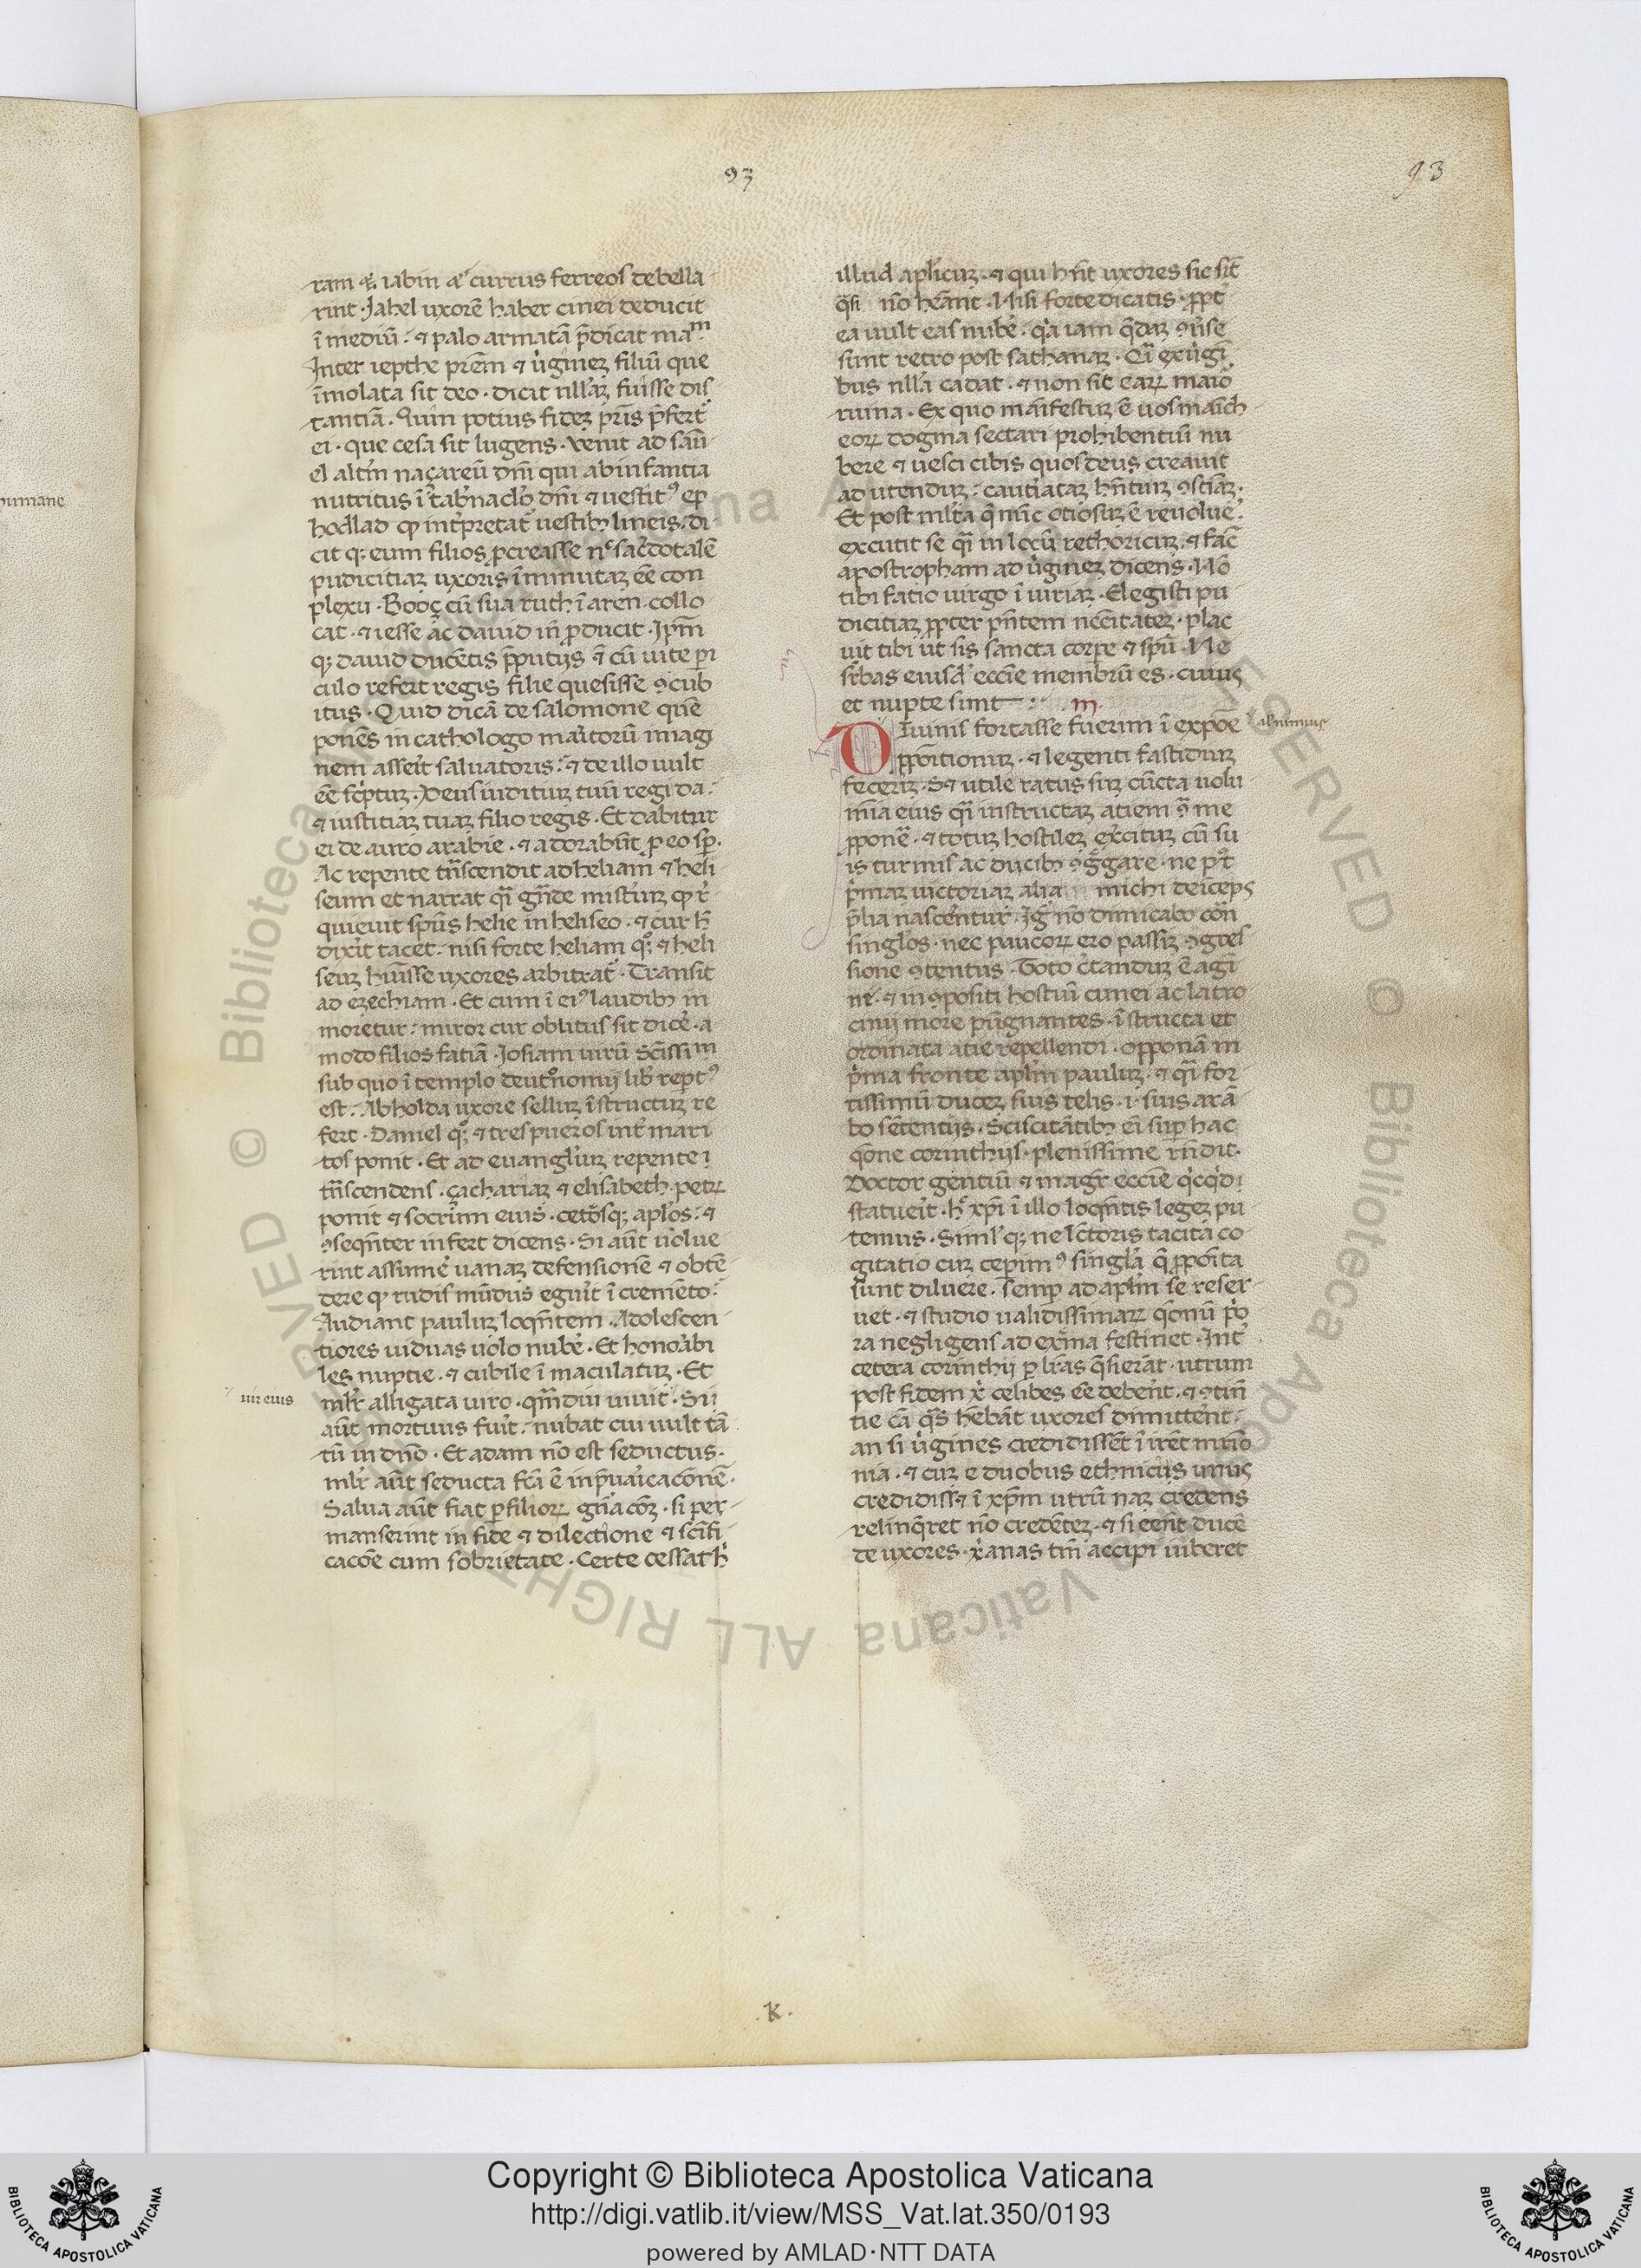 93
93
ram & iabin & currus ferreos debella
rint. Jahel uxorē haber cinei deducit
ī mediū: ⁊ palo armatā p̄dicat maᵐ.
Inter iepthe prēm ⁊ uꝰgineꝫ filiū que
īmolata sit deo. dicit nllaꝫ fuisse dis
tantiā. Quin potius fideꝫ pr̄is p̄fert
ei. que cesa sit lugens. Venit ad saū
el altm̄ naçareū dn̄i qui ab infantia
nutritus ī tab̓naclo dn̄i ⁊ uestitꝰ ep
hod lad qd int̓pretat̓ uestibꝫ lineis. di
cit qꝫ eum filios ꝓcreasse nᶜ sac̓dotalē
pudicitiaꝫ uxoris īminutaꝫ eē con
plexu. Booç cū sua ruth ī aren collo
cat. ⁊ iesse ac dauid in̄ ꝓducit. Ip̄m
qꝫ dauid ducētis p̄putijs ⁊ cū uite ꝑi
culo refert regis filie quesisse ꝯcub
itus. Quid dicā de salomone quē
ponēs in cathologo maritorū imagi
nem asserit saluatoris: ⁊ de illo uult
eē sc̓ptuꝫ. Deus iudituꝫ tuū regi da:
⁊ iustitiaꝫ tuaꝫ filio regis. Et dabitur
ei de auro arabie. ⁊ adorabn̄t ꝑ eo sꝑ.
Ac repente tn̄scendit ad heliam ⁊ heli
seum et narrat qi gn̄de mist̓iuꝫ qd r̓
quieuit spūs helie in heliseo. ⁊ cur h
dix̓it tacet. nisi forte heliam qꝫ ⁊ heli
seuꝫ huisse uxores arbitrat̓. Transit
ad ezechiam. Et cum ī eiꝰ laudibꝫ in
moretur: miror cur oblitus sit dic̓e. a
modo filios fatiā. Josiam uirū sc̄issiᵐ
sub quo ī templo deut̓nomij lib̓ reptꝰ
est. Ab holda uxore selluꝫ īstructuꝫ re
fert. Daniel qꝫ ⁊ tres pueros int̓ mari
tos ponit. Et ad euangliuꝫ repente
tn̄scendens. çachariaꝫ ⁊ elisabeth. petꝝ
ponit ⁊ socrūm eius. cet̓osqꝫ aplos: ⁊
ꝯseqn̄ter infert dicens. Si aūt uolue
rint assume̓ uanaꝫ defensionē ⁊ obtē
dere qd rudis mūdus eguit īcremēto:
Audiant pauluꝫ loqn̄tem. Adolescen
tiores uiduas uolo nube̓. Et honorabi
les nuptie. ⁊ cubile īmaculatuꝫ. Et
mulr̓ alligata uiro. qm̄diu uiuit. Sin
uir eius
aūt mortuus fuit. nubat cui uult tā
tū in dn̄o. Et adam nō est seductus.
mulr̓ aūt seducta fc̄a ē in p̄uaricacōnē.
Salua aūt fiat ꝑ filioꝝ gn̄acōꝫ. si per
manserint in fide ⁊ dilectione ⁊ sc̄ifi
cacōe cum sobrietate. Certe cessat h̓
illud aplicuꝫ. ⁊ qui hn̄t uxores sic sīt
qͣsi nō hēant. Nisi forte dicatis. ꝓpt̓
ea uult eas nube̓. qͣ iam qͣdaꝫ ꝯu̓se
sunt retro post sathanaꝫ. Qͣi ex uꝰgi
bus nllͣ cadat. ⁊ non sit eaꝝ maiō
ruina. Ex quo manifestuꝫ ē uos maich
eoꝝ dogma sectari prohibentiū nu
bere ⁊ uesci cibis quos deus creauit
ad utenduꝫ: cautͥatāꝫ hn̄tuꝫ ꝯsciāꝫ.
Et post mltͣ q̄ nūc otiosuꝫ ē reuolue̓.
excutit se qͣi in locū rethoricuꝫ. ⁊ fac̄
apostropham ad uꝰgineꝫ dicens. Nō
tibi fatio uirgo īiuriaꝫ. Elegisti pu
dicitiaꝫ ꝓpter pn̄tem nēcitateꝫ. plac
uit tibi ut sis sancta corꝑe ⁊ spū. Ne
suꝑbas eiusd̓ ecc̄ie membrū es. cuius
et nupte sunt: m.
Diutius fortasse fuerim ī expōe
ab nimius
ꝓpositionuꝫ. ⁊ legenti fastidiuꝫ
feceriꝫ. Sꝫ utile ratus suꝫ cūcta uolu
mīa eius qͣi instructaꝫ atiem ꝯͣ me
ꝓpone̓. ⁊ totuꝫ hostileꝫ ex̓cituꝫ cū su
is turmis ac ducibꝫ ꝯg̓gare. ne pꝰt
pͥmaꝫ uictoriaꝫ alia michi deiceps
p̄lia nascentur. Igͥ nō dimicabo cōn
singlos. nec paucoꝝ ero passiꝫ ꝯgres
sione ꝯtentus. Toto c̓tanduꝫ ē agi
ne. ⁊ incōpositi hostiū cunei ac latro
cinij more pugnantes. īstructa et
ordinata atie repellendi. Opponā in
pͥma fronte aplm̄ pauluꝫ. ⁊ qͣi for
tissimū duceꝫ suis telis. i. suis armā
bo sētentijs. Sciscitātibꝫ eī suꝑ hac
qōne corinthijs. plenissime rn̄dit.
Doctor gentiū ⁊ magr̄ ecc̄ie qͥcqͥd
statuerit. h̓ xp̄i ī illo loqn̄tis legeꝫ pu
temus. Simlͥ qꝫ ne lc̄toris tacita co
gitatio cuꝫ ceꝑimꝰ singlͣ q̄ ꝓpōita
sunt diluere. semꝑ ad aplm̄ se reser
uet. ⁊ studio ualidissimaꝝ qōnū pͥo
ra negligens ad exͣma festinet. Int̓
cetera corinthij ꝑ lr̄as qͣsierāt. utrum
post fidem xͥ celibes eē debent. ⁊ ꝯtin̄
tie cā qͣs hēbāt uxores dimittēnt.
an si uꝰgines credidissēt īirēt mrīo
nia. ⁊ cuꝫ e duobus ethnicis unus
credidiss⁊ ī xp̄m utrū naꝫ credens
relinq̄ret nō credēteꝫ. ⁊ si eēnt ducē
de uxores. xͥanas tm̄ accipi iuberet
.K.
humane
Copyright © Biblioteca Apostolica Vaticana
http://digi.vatlib.it/view/MSS_Vat.lat.350/0193
powered by AMLAD·NTT DATA
BIBLIOTECA APOSTOLICA VATICANA
BIBLIOTECA APOSTOLICA VATICANA